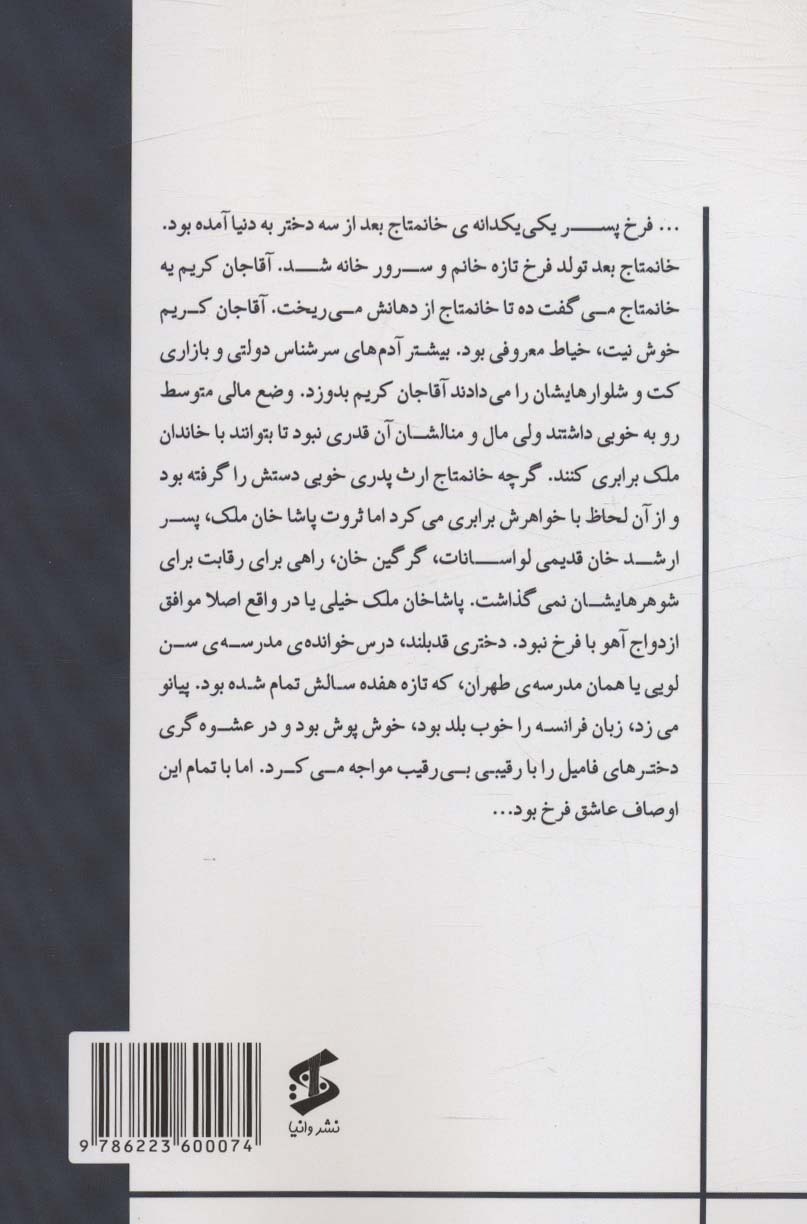 ... فرخ پسر یکی‌یکدانه ی خانمتاج بعد از سه دختر به دنیا آمده بود.
خانمتاج بعد تولد فرخ تازه خانم و سرور خانه شد. آقاجان کریم یه
خانمتاج می گفت ده تا خانمتاج از دهانش می‌ریخت. آقاجان کریم
خوش نیت، خیاط معروفی بود. بیشتر آدم‌های سرشناس دولتی و بازاری
کت و شلوارهایشان را می‌دادند آقاجان کریم بدوزد. وضع مالی متوسط
رو به خوبی داشتند ولی مال و منالشان آن قدری نبود تا بتوانند با خاندان
ملک برابری کنند. گرچه خانمتاج ارث پدری خوبی دستش را گرفته بود
و از آن لحاظ با خواهرش برابری می کرد اما ثروت پاشا خان ملک، پسر
ارشد خان قدیمی لواسانات، گرگین خان، راهی برای رقابت برای
شوهرهایشان نمی گذاشت. پاشاخان ملک خیلی یا در واقع اصلا موافق
ازدواج آهو با فرخ نبود. دختری قدبلند، درس‌خوانده‌ی مدرسه‌ی سن
لویی یا همان مدرسه‌ی طهران، که تازه هفده سالش تمام شده بود. پیانو
می زد، زبان فرانسه را خوب بلد بود، خوش پوش بود و در عشوه گری
دخترهای فامیل را با رقیبی بی‌رقیب مواجه می کرد. اما با تمام این
اوصاف عاشق فرخ بود...
نشر وانیا
9 786223 600074